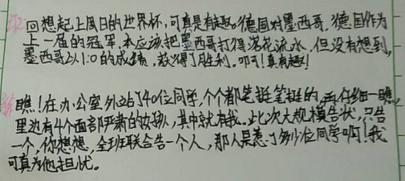 回想起上周日的世界杯,可真是有趣。德国对墨西哥,德国作为
上一届的冠军,本应该把墨西哥打得落花流水,但没有想到,
墨西哥以1:0的成绩,获得了胜利。叹!真有趣!
瞧!在办公室外站了40位同学,个个都笔挺笔挺的,再仔细一瞧
里边有4个面部严肃的女孩,其中就有我。此次大规模告状,只告
一个,你想想,全班联合告一个人,那人是惹了多少位同学啊!我
可真为他担忧。